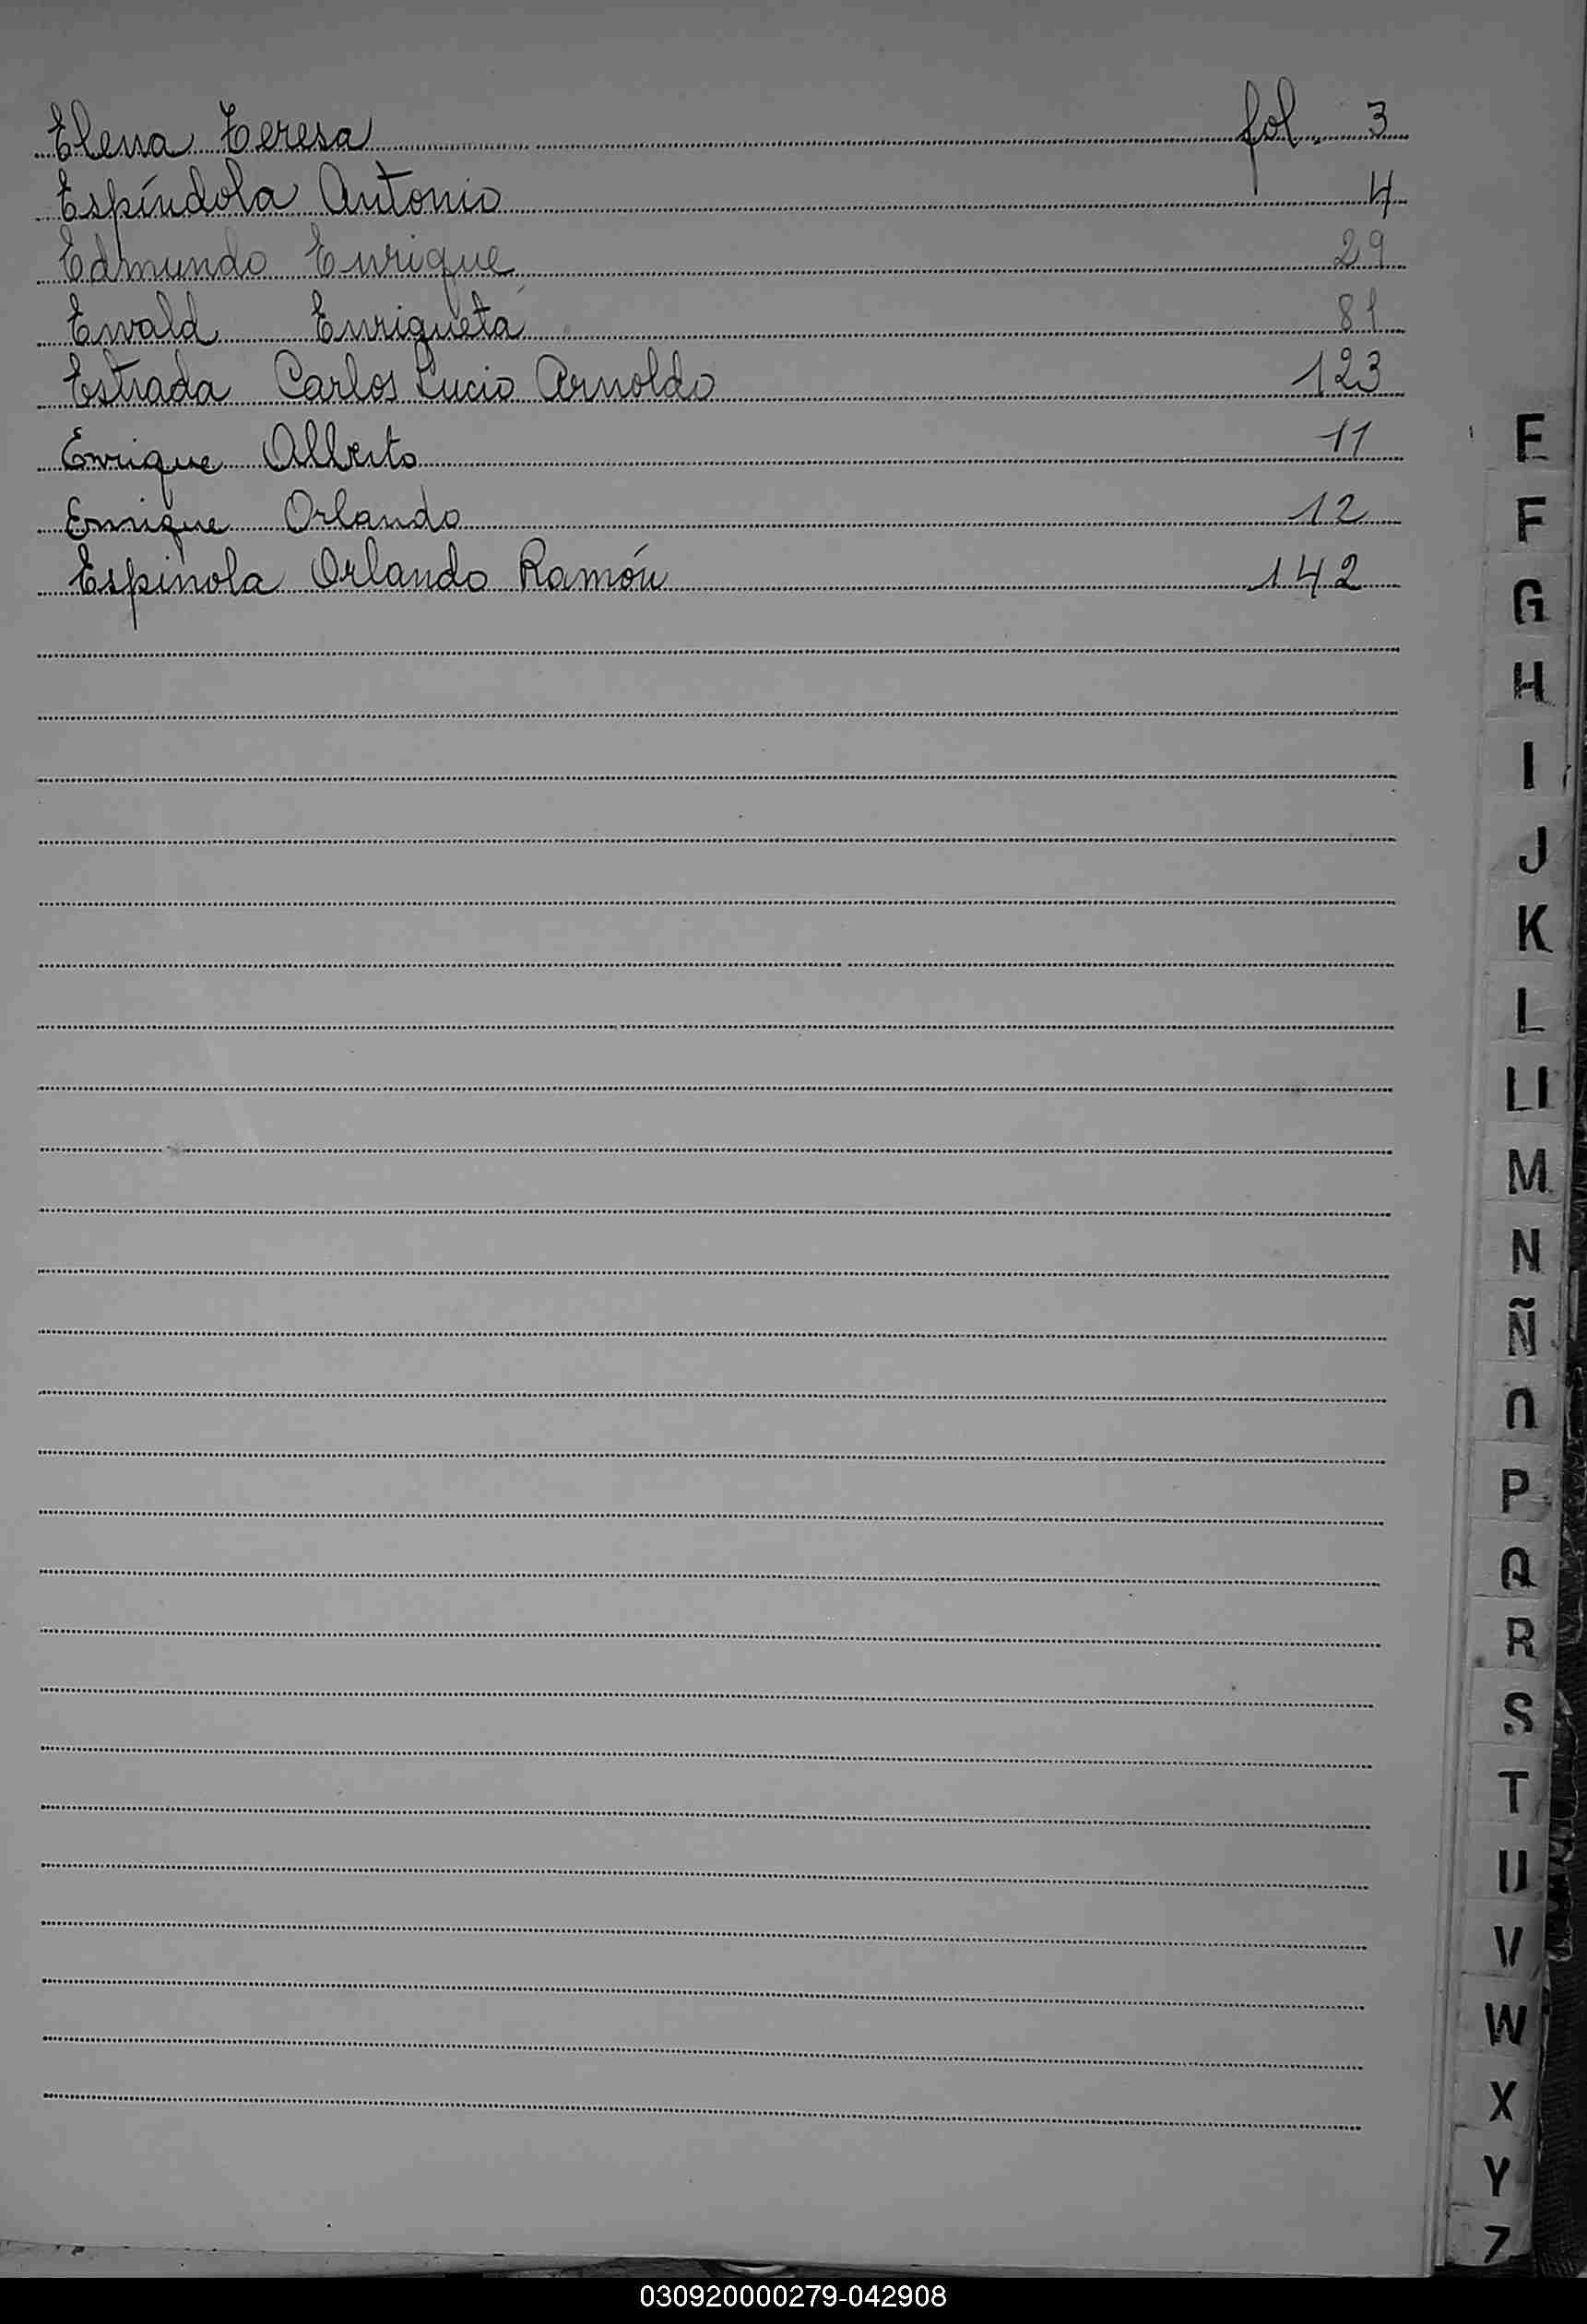 Elena Teresa fol. 3
Espíndola Antonio 4
Edmundo Enrique 29
Ewald Enriqueta 81
Estrada Carlos Lucio Arnoldo 123
Enrique Alberto 11
Enrique Orlando 12
Espínola Orlando Ramón 142
E
F
G
H
I
J
K
L
Ll
M
N
Ñ
O
P
Q
R
S
T
U
V
W
X
Y
Z
030920000279-042908